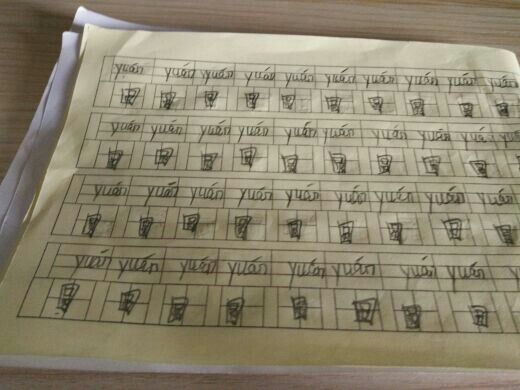 yuán yuán yuán yuán yuán yuán yuán yuán yuán yuán
圆 圆 圆 圆 圆 圆 圆 圆 圆 圆
yuán yuán yuán yuán yuán yuán yuán yuán yuá yuán
圆 圆 圆 圆 圆 圆 圆 圆 圆 圆
yuán yuán yuán yuán yuán yuán yuán yuán yuán
圆 圆 圆 圆 圆 圆 圆 圆 圆
yuán yuán yuán yuán yuán yuán yuán yuán
圆 圆 圆 圆 圆 圆 圆 圆